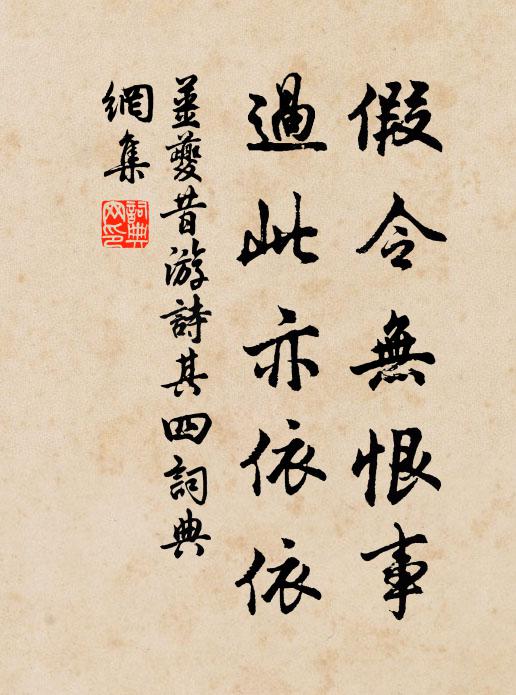 假令無恨事
過此亦依依
姜夔昔游詩其四詞典
網集
詞典網印